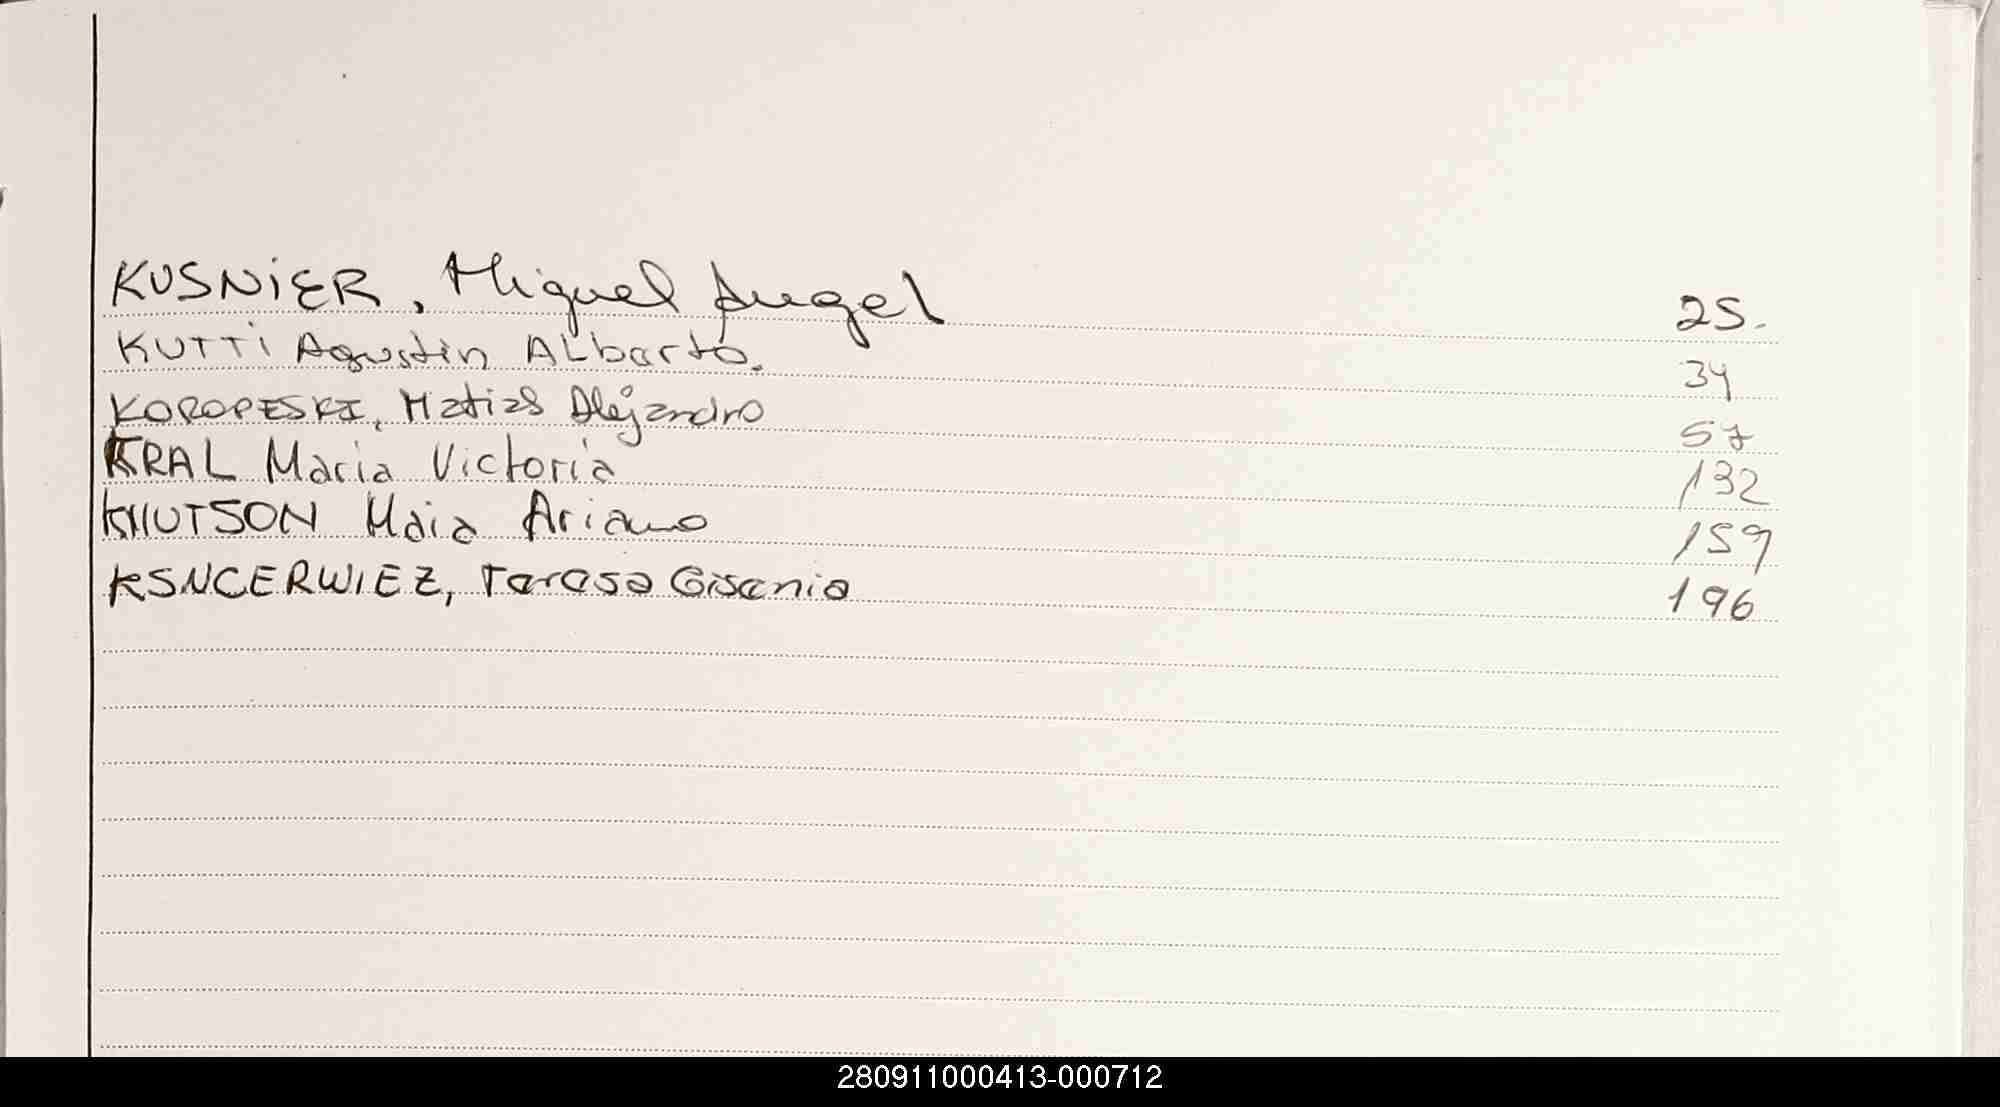 KUSNiER, Miguel Angel 25.
KUTTi Agustin ALberto. 34
KOROPESKI, Matias Alejandro 57
KRAL Maria Victoria 132
KNUTSON Maia Ariana 159
KSNCERWIEZ, Teresa Gisenia 196
280911000413-000712